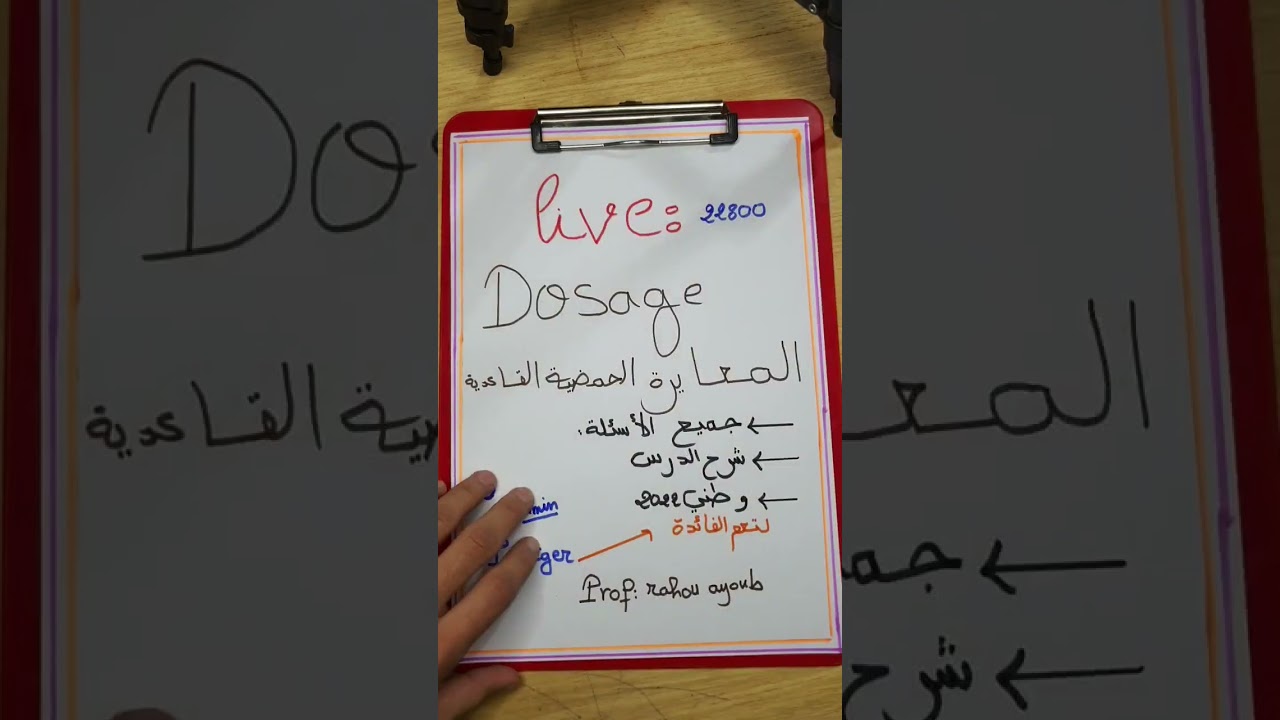 live: 22800
Dosage
المعايرة الحمضية القاعدية
← جميع الأسئلة.
← شرح الدرس
← وطني 2022
min
لتعم الفائدة
ger
Prof: rahou ayoub